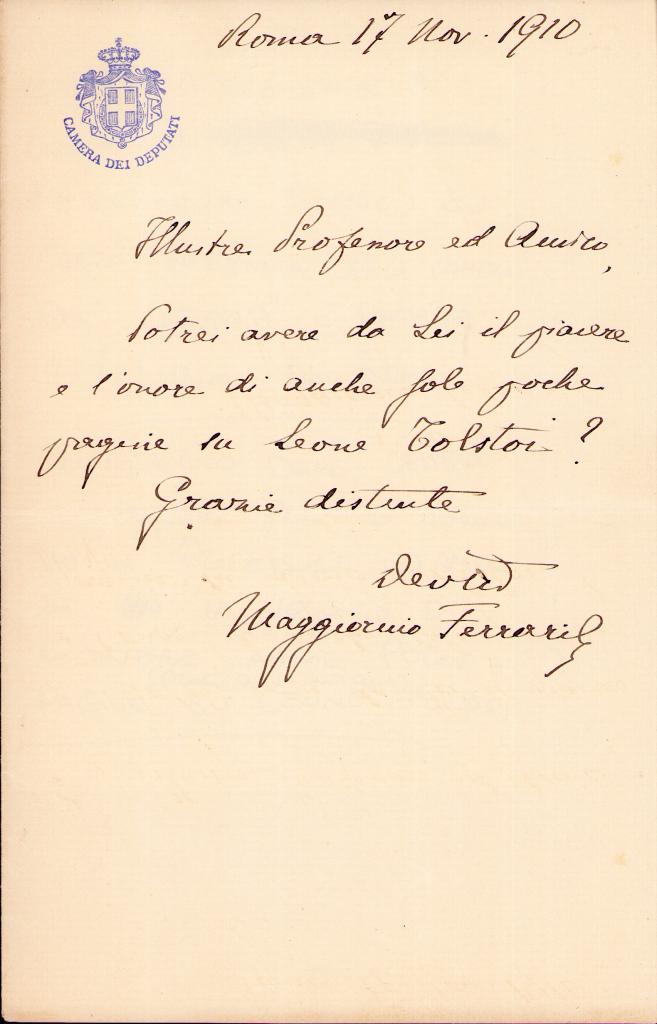 Roma 17 Nov. 1910
CAMERA DEI DEPUTATI
Illustre Professore ed Amico,
Potrei avere da Lei il piacere
e l'onore di anche sole poche
pagine su Leone Tolstoi ?
Grazie distinte
Devtō
Maggiorino Ferraris